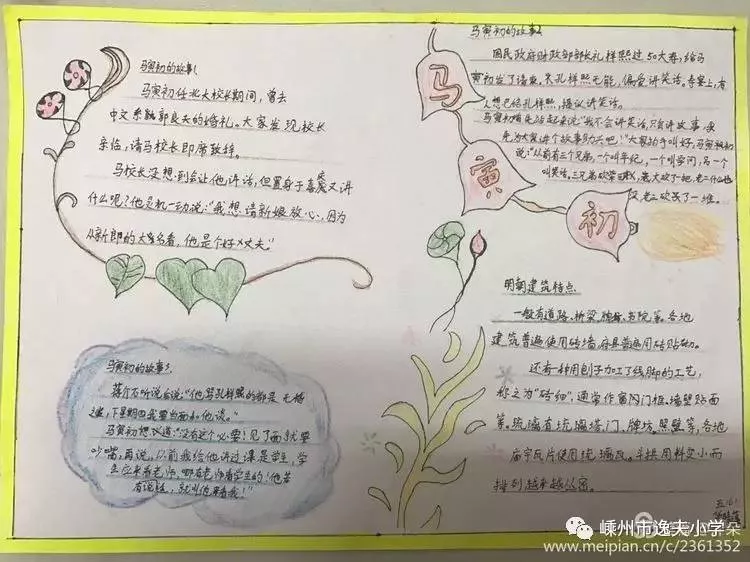 马寅初的故事1
马寅初任北大校长期间，曾去
中文系郭良夫的婚礼。大家发现校长
亲临，请马校长即席致辞。
马校长没想到会让他讲话，但置身于喜庆又讲
什么呢？他灵机一动说："我想请新娘放心，因为
从新郎的大名看，他是个好丈夫。"
马寅初的故事2
国民政府财政部部长孔祥熙过50大寿，给马
寅初发了请柬。孔祥熙无能，偏爱讲笑话。寿宴上，有
人想巴结孔祥熙，提议讲笑话。
马寅初首先站起来说："我不会讲笑话，只会讲故事，
先为大家讲个故事助兴吧！"大家拍手叫好，马寅初
说："从前有三个兄弟，一个叫年纪，一个叫学问，另一个
叫笑话。三兄弟砍柴
老三砍了一堆。
马
寅
初
马寅初的故事3
蒋介石听说后说："他骂孔祥熙的都是无稽
之谈，下星期四我要当面和他谈。"
马寅初想议道："没有这个必要！见了面就要
吵嘴，再说，以前我给他讲过课是学生，学
生应来看老师，哪有老师看学生的！他若
有说话，就叫他来看我！"
明朝建筑特点
一般有道路、桥梁、牌坊、书院等。各地
建筑普遍使用砖墙府县普遍用砖贴砌。
还有一种用刨子加工了线脚的工艺，
称之为"砖细"，通常作窗网门框、墙壁贴面
等。琉璃有琉璃塔门、牌坊、照壁等，各地
庙宇瓦片使用琉璃瓦。斗拱用料变小而
排列越来越丛密。
五(6)
嵊州市逸夫小学
www.meipian.cn/c/2361352